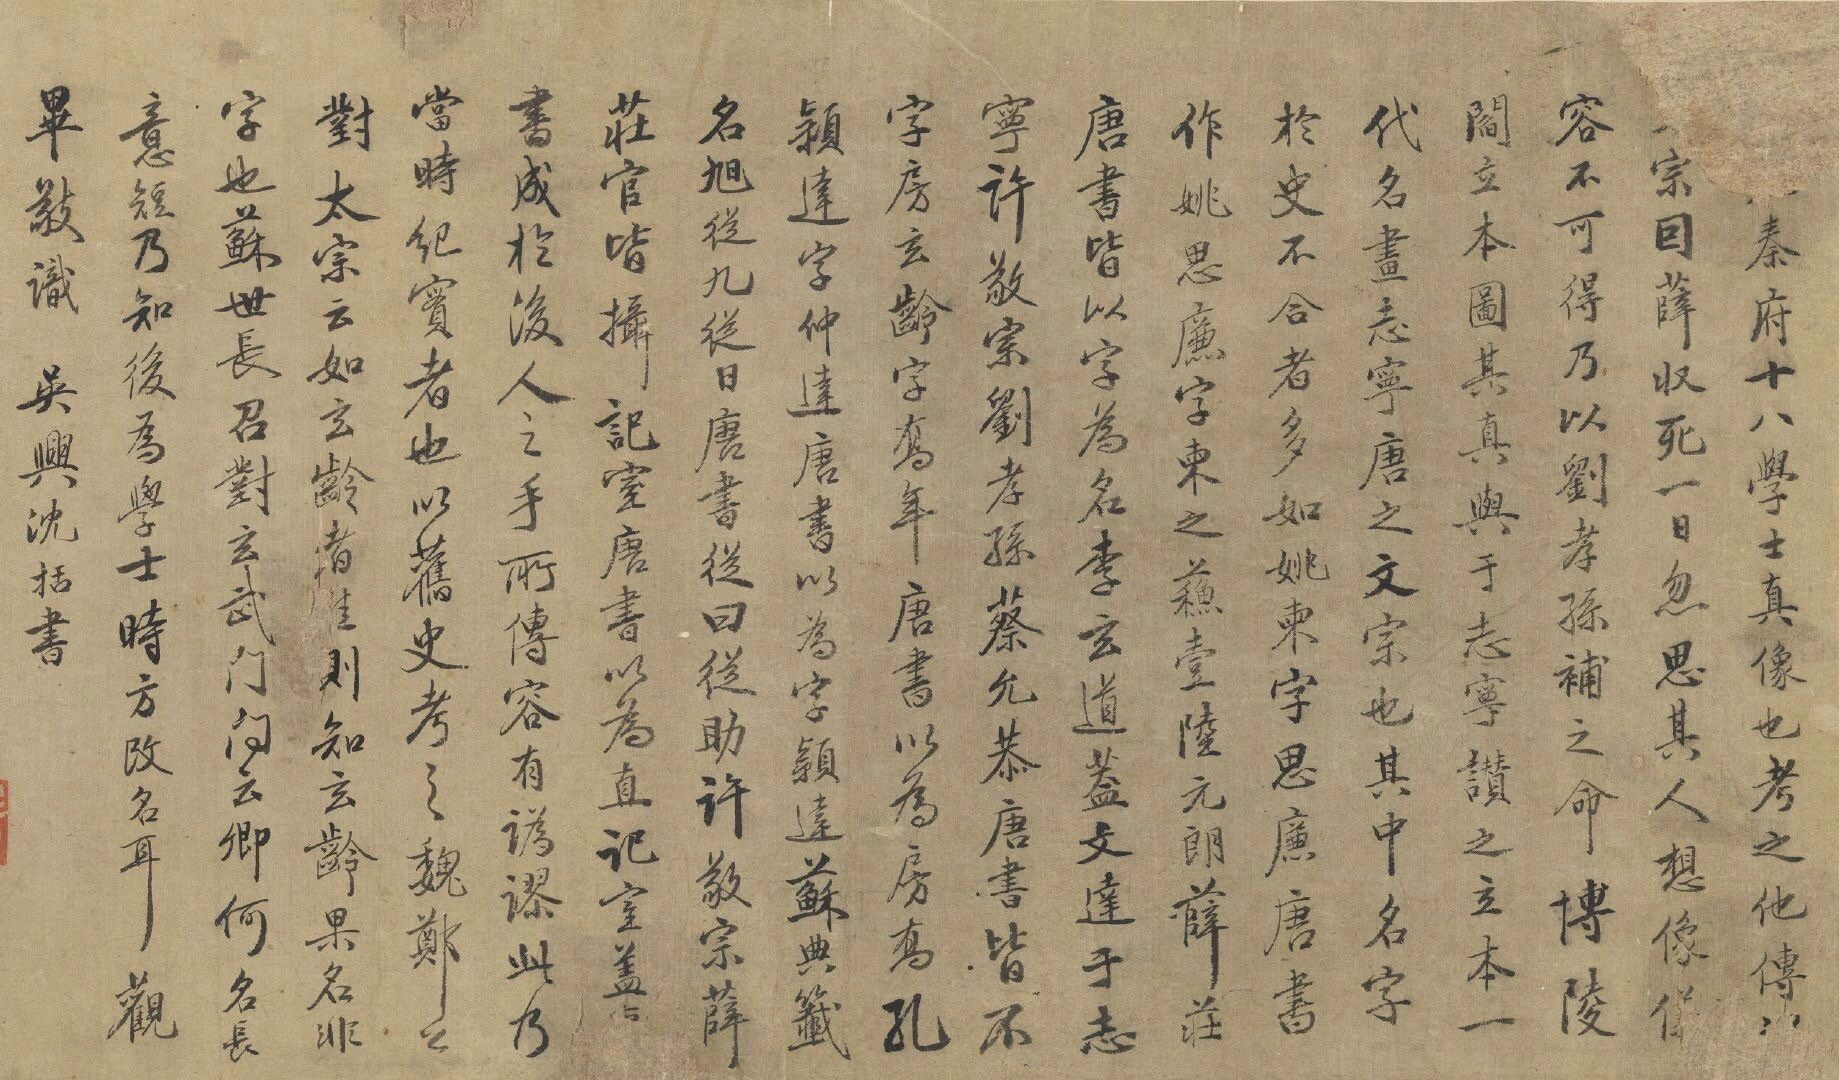 秦府十八學士真像也考之他傳
宗因薛收死一日忽思其人想像儀
容不可得乃以劉孝孫補之命博陵
閻立本圖其真與于志寧讃之立本一
代名畫志寧唐之文宗也其中名字
於史不合者多如姚柬字思廉唐書
作姚思廉字柬之蘓壹陸元朗薛莊
唐書皆以字為名李玄道葢文達于志
寧許敬宗劉孝孫蔡允恭唐書皆不
字房玄齡字喬年唐書以為房喬孔
頴達字仲達唐書以為字頴達蘇典籤
名旭從九從日唐書從曰從助許敬宗薛
莊官皆攝記室唐書以為直記室葢
書成於後人之手所傳容有譌謬此乃
當時紀實者也以舊史考之魏鄭公
對太宗云如玄齡者 則知玄齡果名非
字也蘇世長召對玄武門問云卿何名長
意短乃知後為學士時方改名耳觀
畢敬識 吳興沈括書